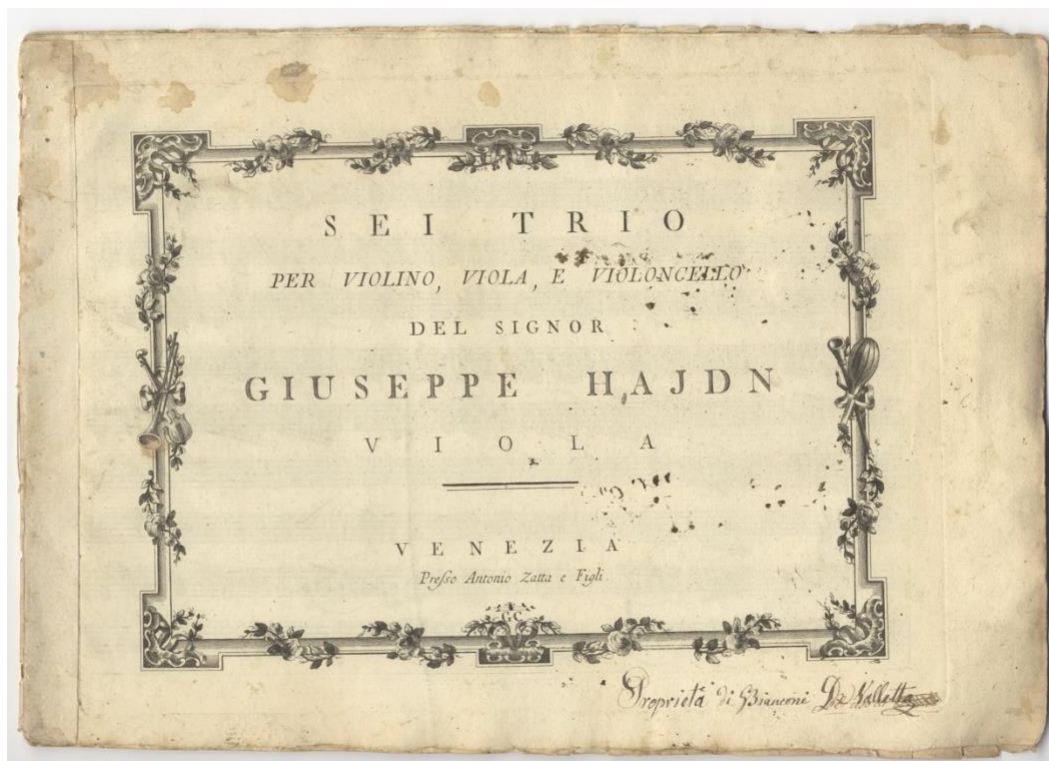 SEI TRIO
PER VIOLINO, VIOLA, E VIOLONCELLO
DEL SIGNOR
GIUSEPPE HAJDN
VIOLA
VENEZIA
Preſso Antonio Zatta e Figli.
G.C.
Proprietà di GBianconi De Valletta